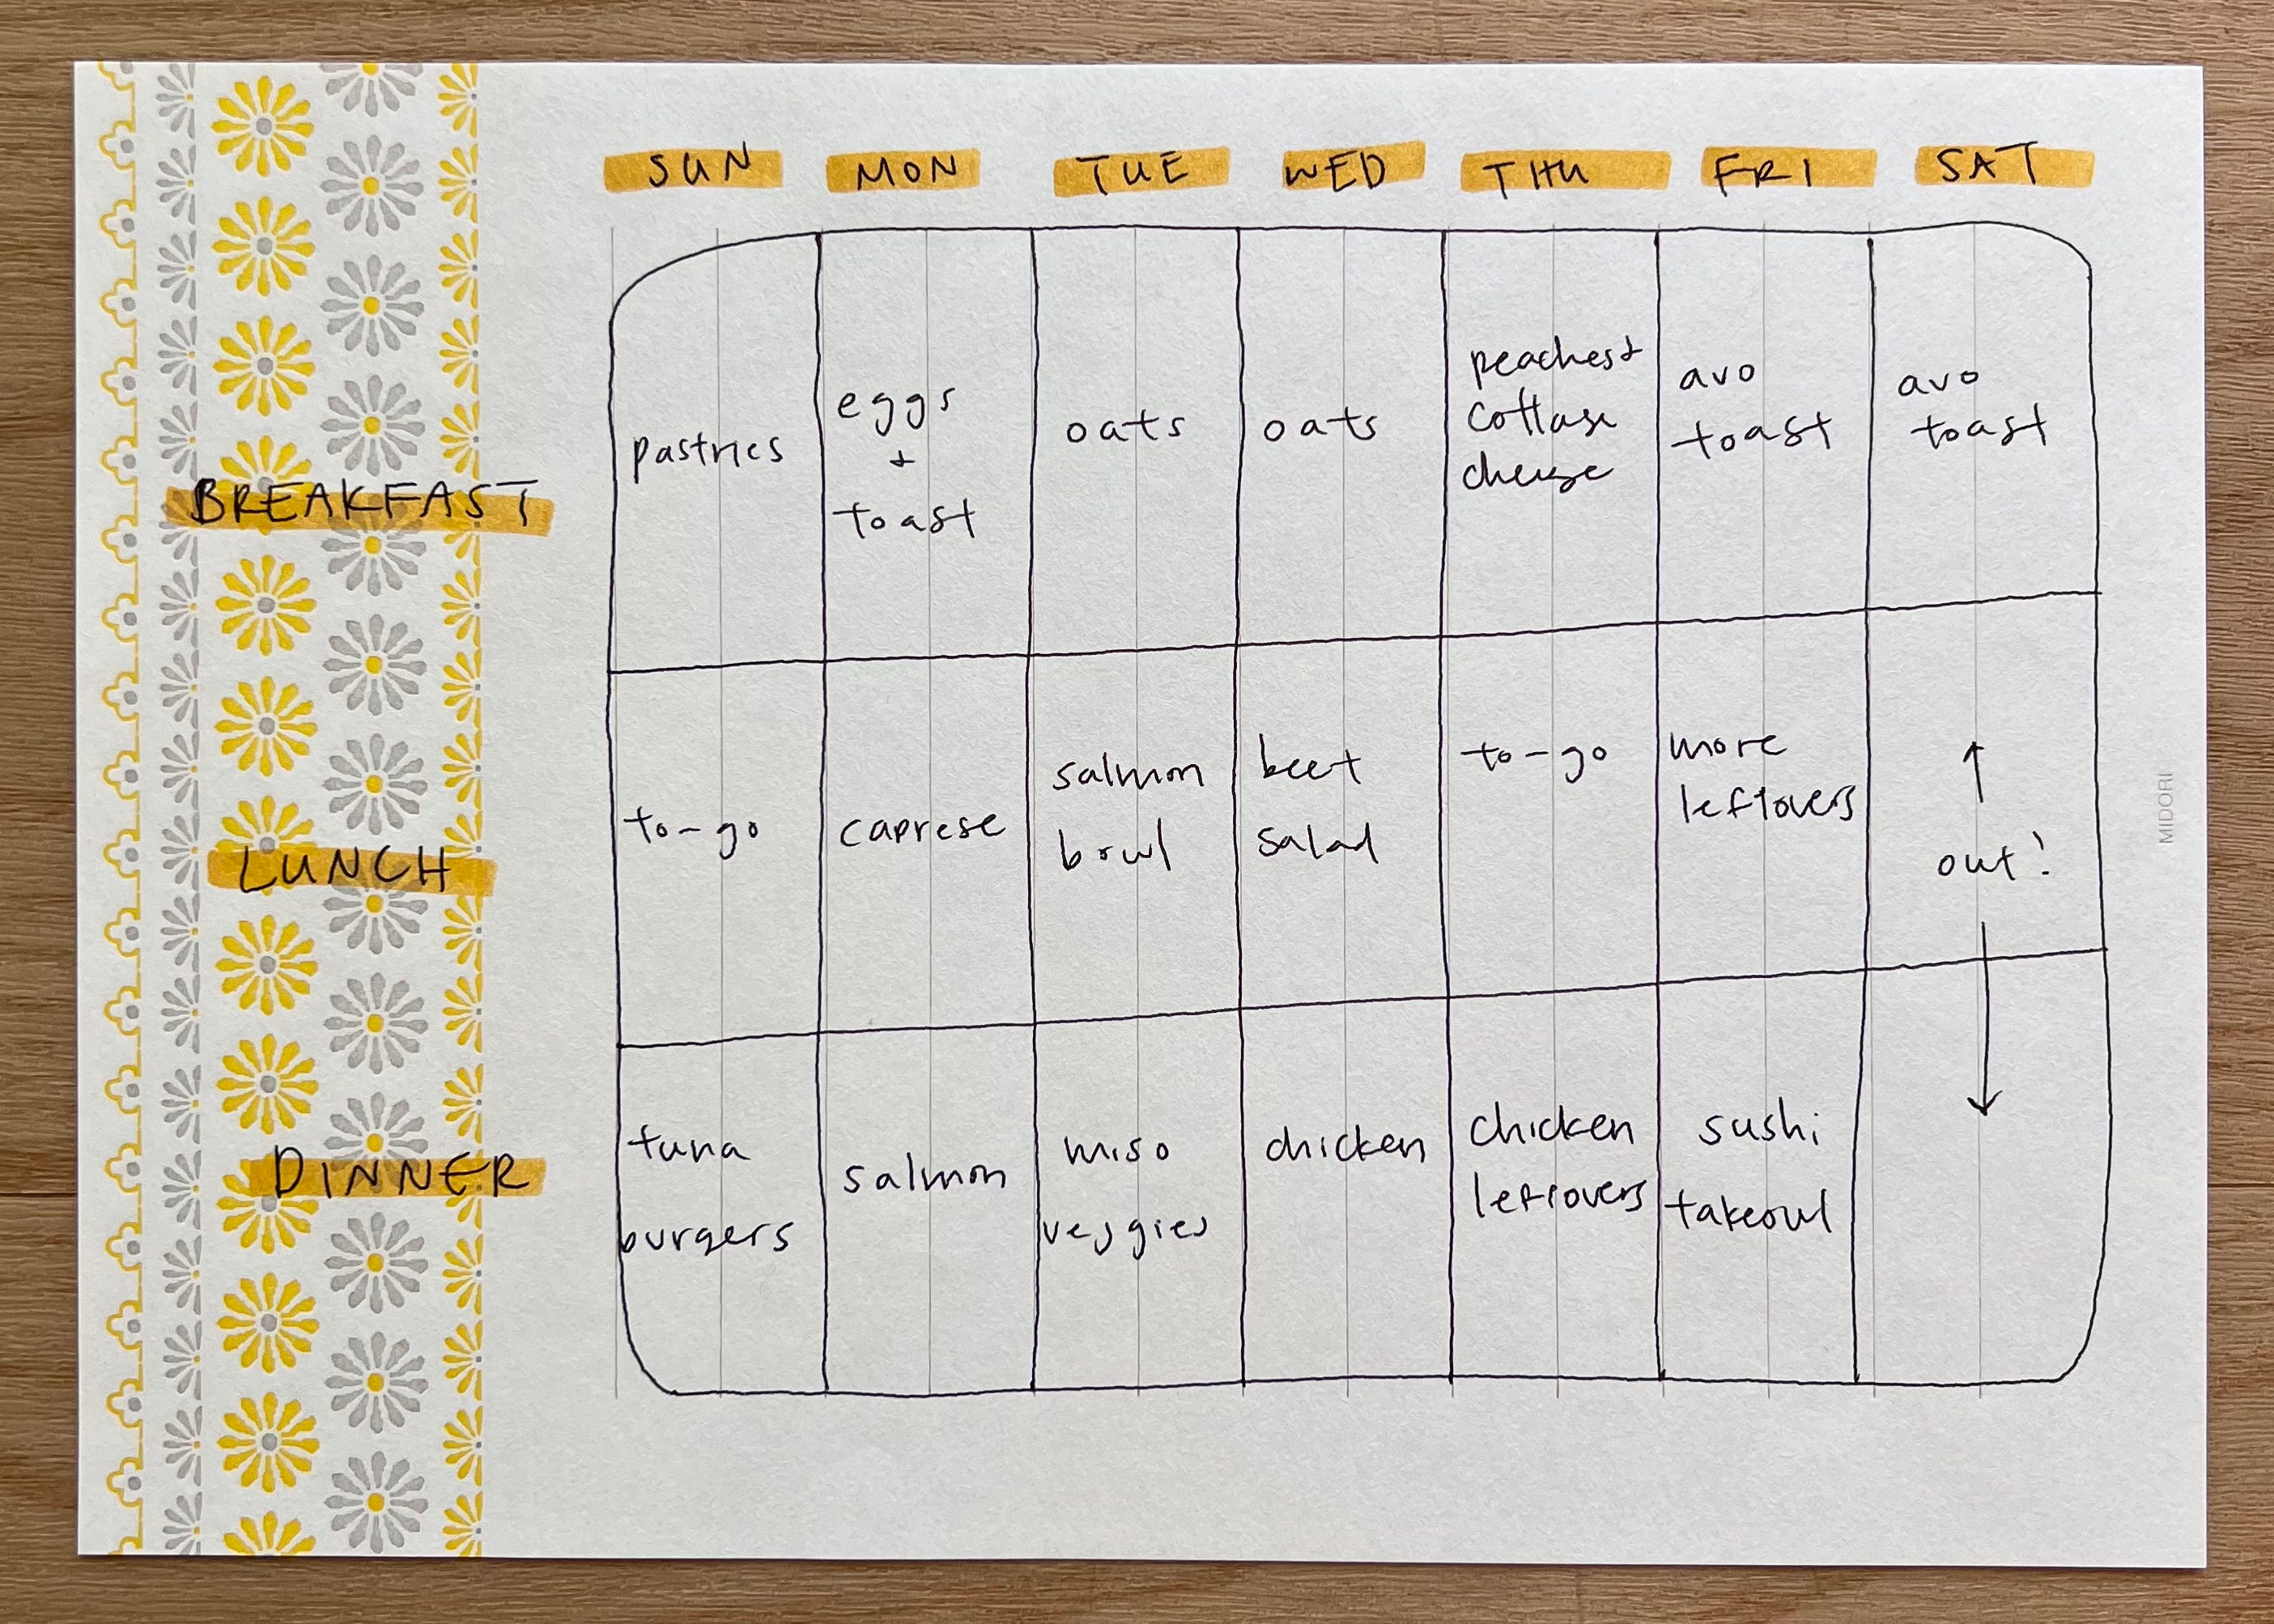 SUN MON TUE WED THU FRI SAT
BREAKFAST
pastries
eggs
+
toast
oats
oats
peaches +
cottage
cheese
avo
toast
avo
toast
LUNCH
to-go
caprese
salmon
bowl
beet
salad
to-go
more
leftovers
↑
out!
↓
DINNER
tuna
burgers
salmon
miso
veggies
chicken
chicken
leftovers
sushi
takeout
MIDORI